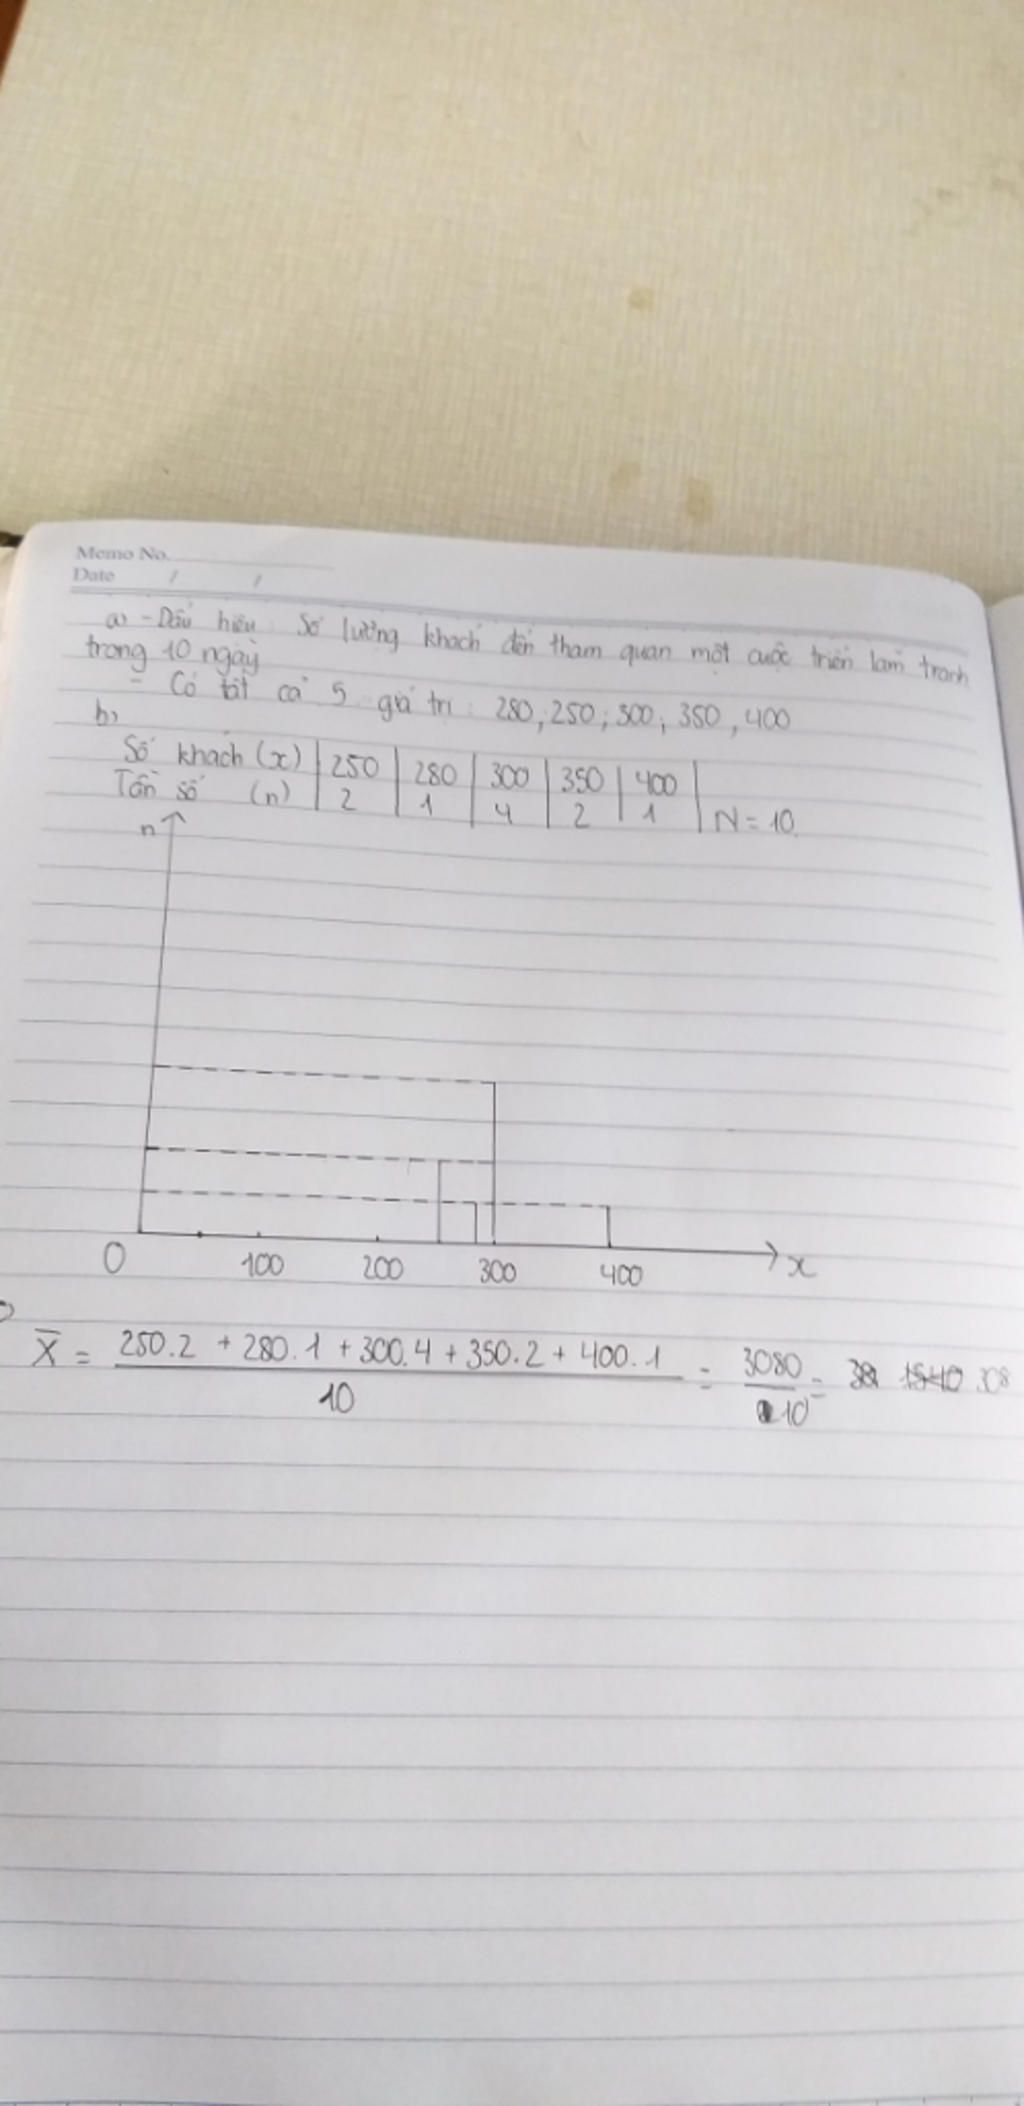 Memo No.
Date / /
a) - Dấu hiệu: Số lượng khách đến tham quan một cuộc triển lãm tranh
trong 10 ngày
- Có tất cả 5 giá trị: 280, 250, 300, 350, 400
b)
Số khách (x) | 250 | 280 | 300 | 350 | 400 |
Tần số (n) | 2 | 1 | 4 | 2 | 1 | N = 10
n
0 100 200 300 400 x
X̄ = (250.2 + 280.1 + 300.4 + 350.2 + 400.1)/10 = 3080/10 = 308